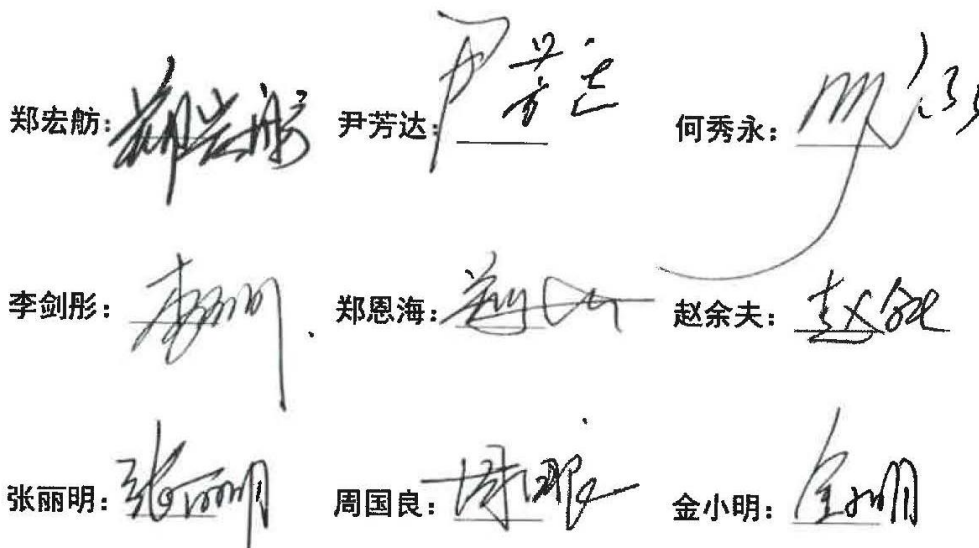 郑宏舫： 郑宏舫 尹芳达： 尹芳达 何秀永：
李剑彤： 李剑彤 郑恩海： 赵余夫： 赵余夫
张丽明： 张丽明 周国良： 周国良 金小明： 金小明